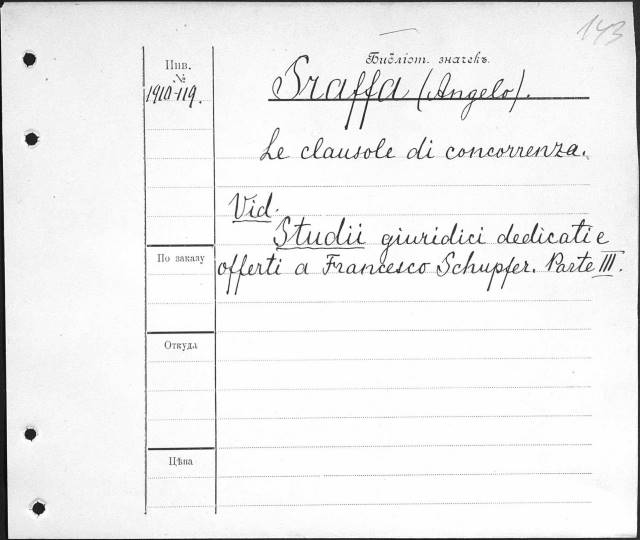 143
Библіот. значекъ.
Инв.
№
1910-119.
Sraffa (Angelo).
Le clausole di concorrenza.
Vid.
Studii giuridici dedicati e
По заказу
offerti a Francesco Schupfer. Parte III.
Откуда
Цѣна